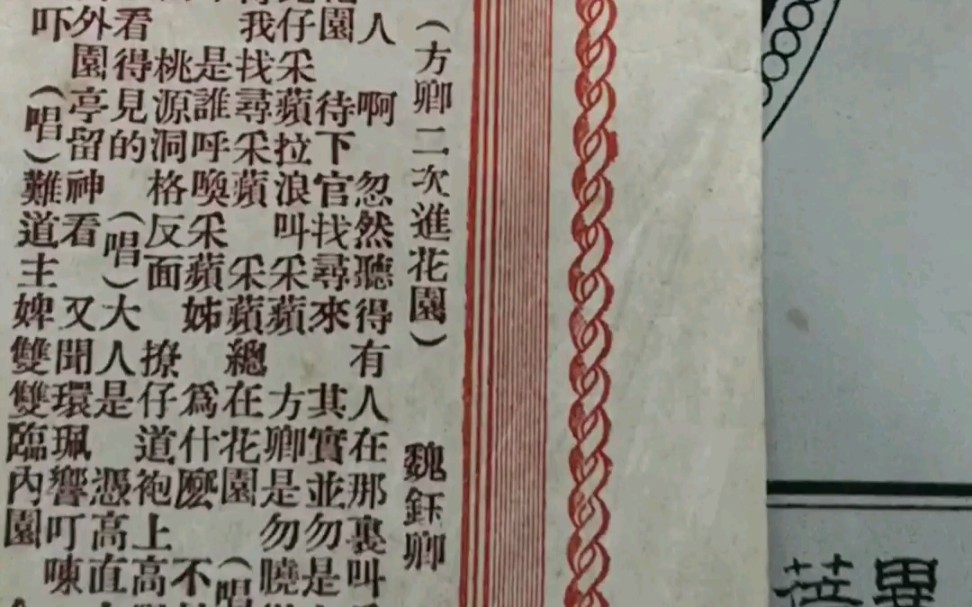 （方卿二次進花園） 魏鈺卿
人 啊 忽然聽得 有人在那裏叫
園 待下官找尋來 其實並勿是
仔采蘋拉浪叫采蘋 方卿是勿曉
我找尋采蘋 采蘋總在花園 （唱
是誰呼喚采蘋姊 爲什麽 不
桃源洞格反面 撩仔道袍上高
看得見的 （唱）大人是憑高直
外園亭留神看 又聞環珮響叮㖦
吓 （唱）難道主婢雙雙臨內園